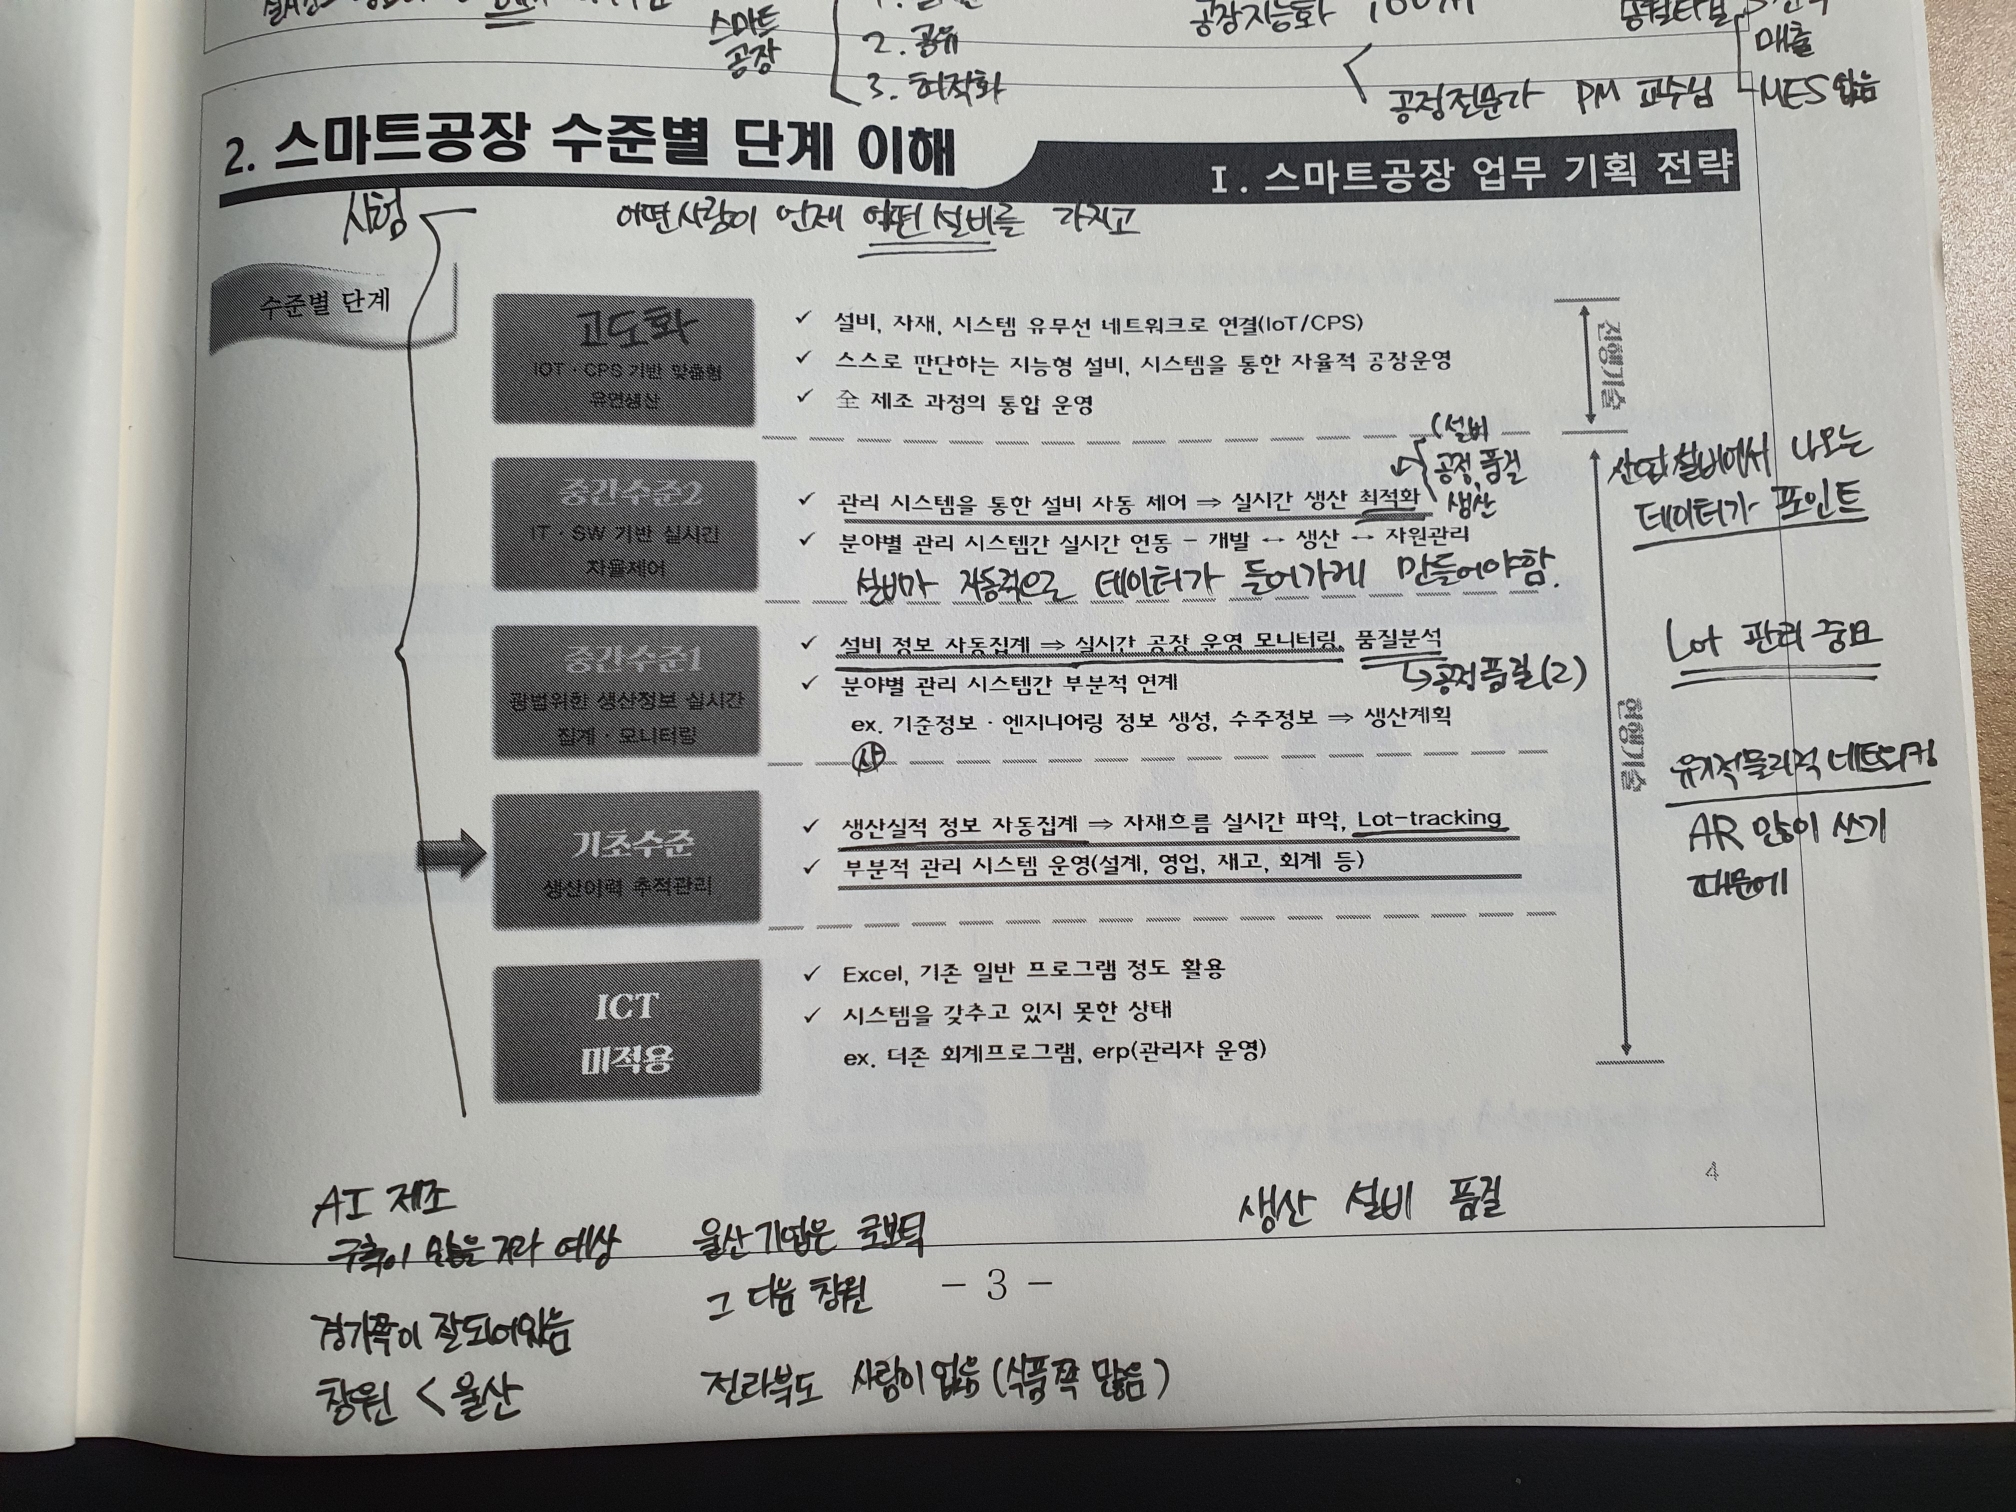 스마트
공장
2. 공유
3. 최적화
공장지능화
매출
공정전문가 PM 교수님
MES 없음
2. 스마트공장 수준별 단계 이해
I. 스마트공장 업무 기획 전략
시험
어떤사람이 언제 어떤설비를 가지고
수준별 단계
고도화
IOT · CPS 기반 맞춤형
유연생산
✓ 설비, 자재, 시스템 유무선 네트워크로 연결(IoT/CPS)
✓ 스스로 판단하는 지능형 설비, 시스템을 통한 자율적 공장운영
✓ 全 제조 과정의 통합 운영
선행기술
설비
공정,품질
생산
중간수준2
IT · SW 기반 실시간
자율제어
✓ 관리 시스템을 통한 설비 자동 제어 ⇒ 실시간 생산 최적화
✓ 분야별 관리 시스템간 실시간 연동 - 개발 ↔ 생산 ↔ 자원관리
설비마 자동적으로 데이터가 들어가게 만들어야함.
산업설비에서 나오는
데이터가 포인트
중간수준1
광범위한 생산정보 실시간
집계 · 모니터링
✓ 설비 정보 자동집계 ⇒ 실시간 공장 운영 모니터링, 품질분석
공정품질(2)
✓ 분야별 관리 시스템간 부분적 연계
ex. 기준정보 · 엔지니어링 정보 생성, 수주정보 ⇒ 생산계획
상
Lot 관리 중요
현행기술
유기적물리적 네트워킹
AR 많이 쓰기
때문에
기초수준
생산이력 추적관리
✓ 생산실적 정보 자동집계 ⇒ 자재흐름 실시간 파악, Lot-tracking
✓ 부분적 관리 시스템 운영(설계, 영업, 재고, 회계 등)
ICT
미적용
✓ Excel, 기존 일반 프로그램 정도 활용
✓ 시스템을 갖추고 있지 못한 상태
ex. 더존 회계프로그램, erp(관리자 운영)
4
AI 제조
구축이 많을 거라 예상
경기쪽이 잘되어있음
창원 < 울산
울산기업은 로보틱
그 다음 창원
전라북도 사람이 없음 (식품쪽 많음)
생산 설비 품질
- 3 -